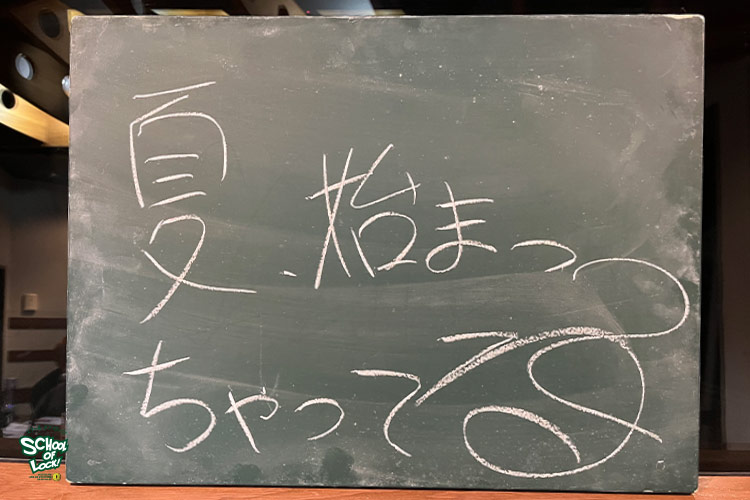 夏、始まっ
ちゃってる?
SCHOOL
OF
LOCK!